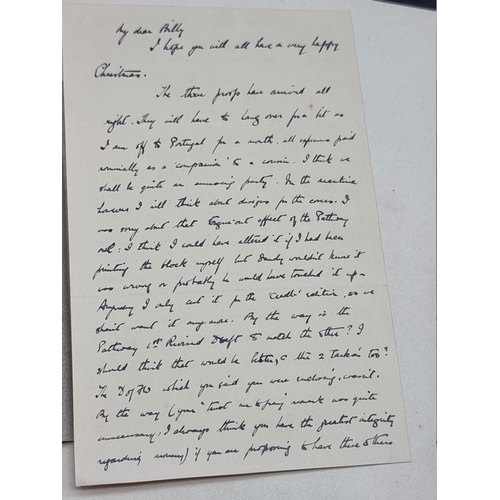 My dear Billy
I hope you will all have a very happy
Christmas.
The three proofs have arrived all
right. They will have to hang over for a bit as
I am off to Portugal for a month, all expenses paid
nominally as a 'companion' to a cousin. I think we
shall be quite an amusing party. In the meantime
however I will think about designs for the covers. I
was sorry about that effect of the Pathway
I think I could have altered it if I had been
printing the block myself but wouldn't know it
was wrong or probably he would have touched it up -
Anyway I only cut it for the edition, so we
shan't want it any more. By the way is the
Pathway 1st Revised Draft to match the other? I
should think that would be better, & this 2 Tarka's too?
The D of FW which you said you were enclosing, wasn't.
By the way (your 'trust me to pay' remark was quite
unnecessary; I always think you have the greatest integrity
regarding money) if you are proposing to have these others